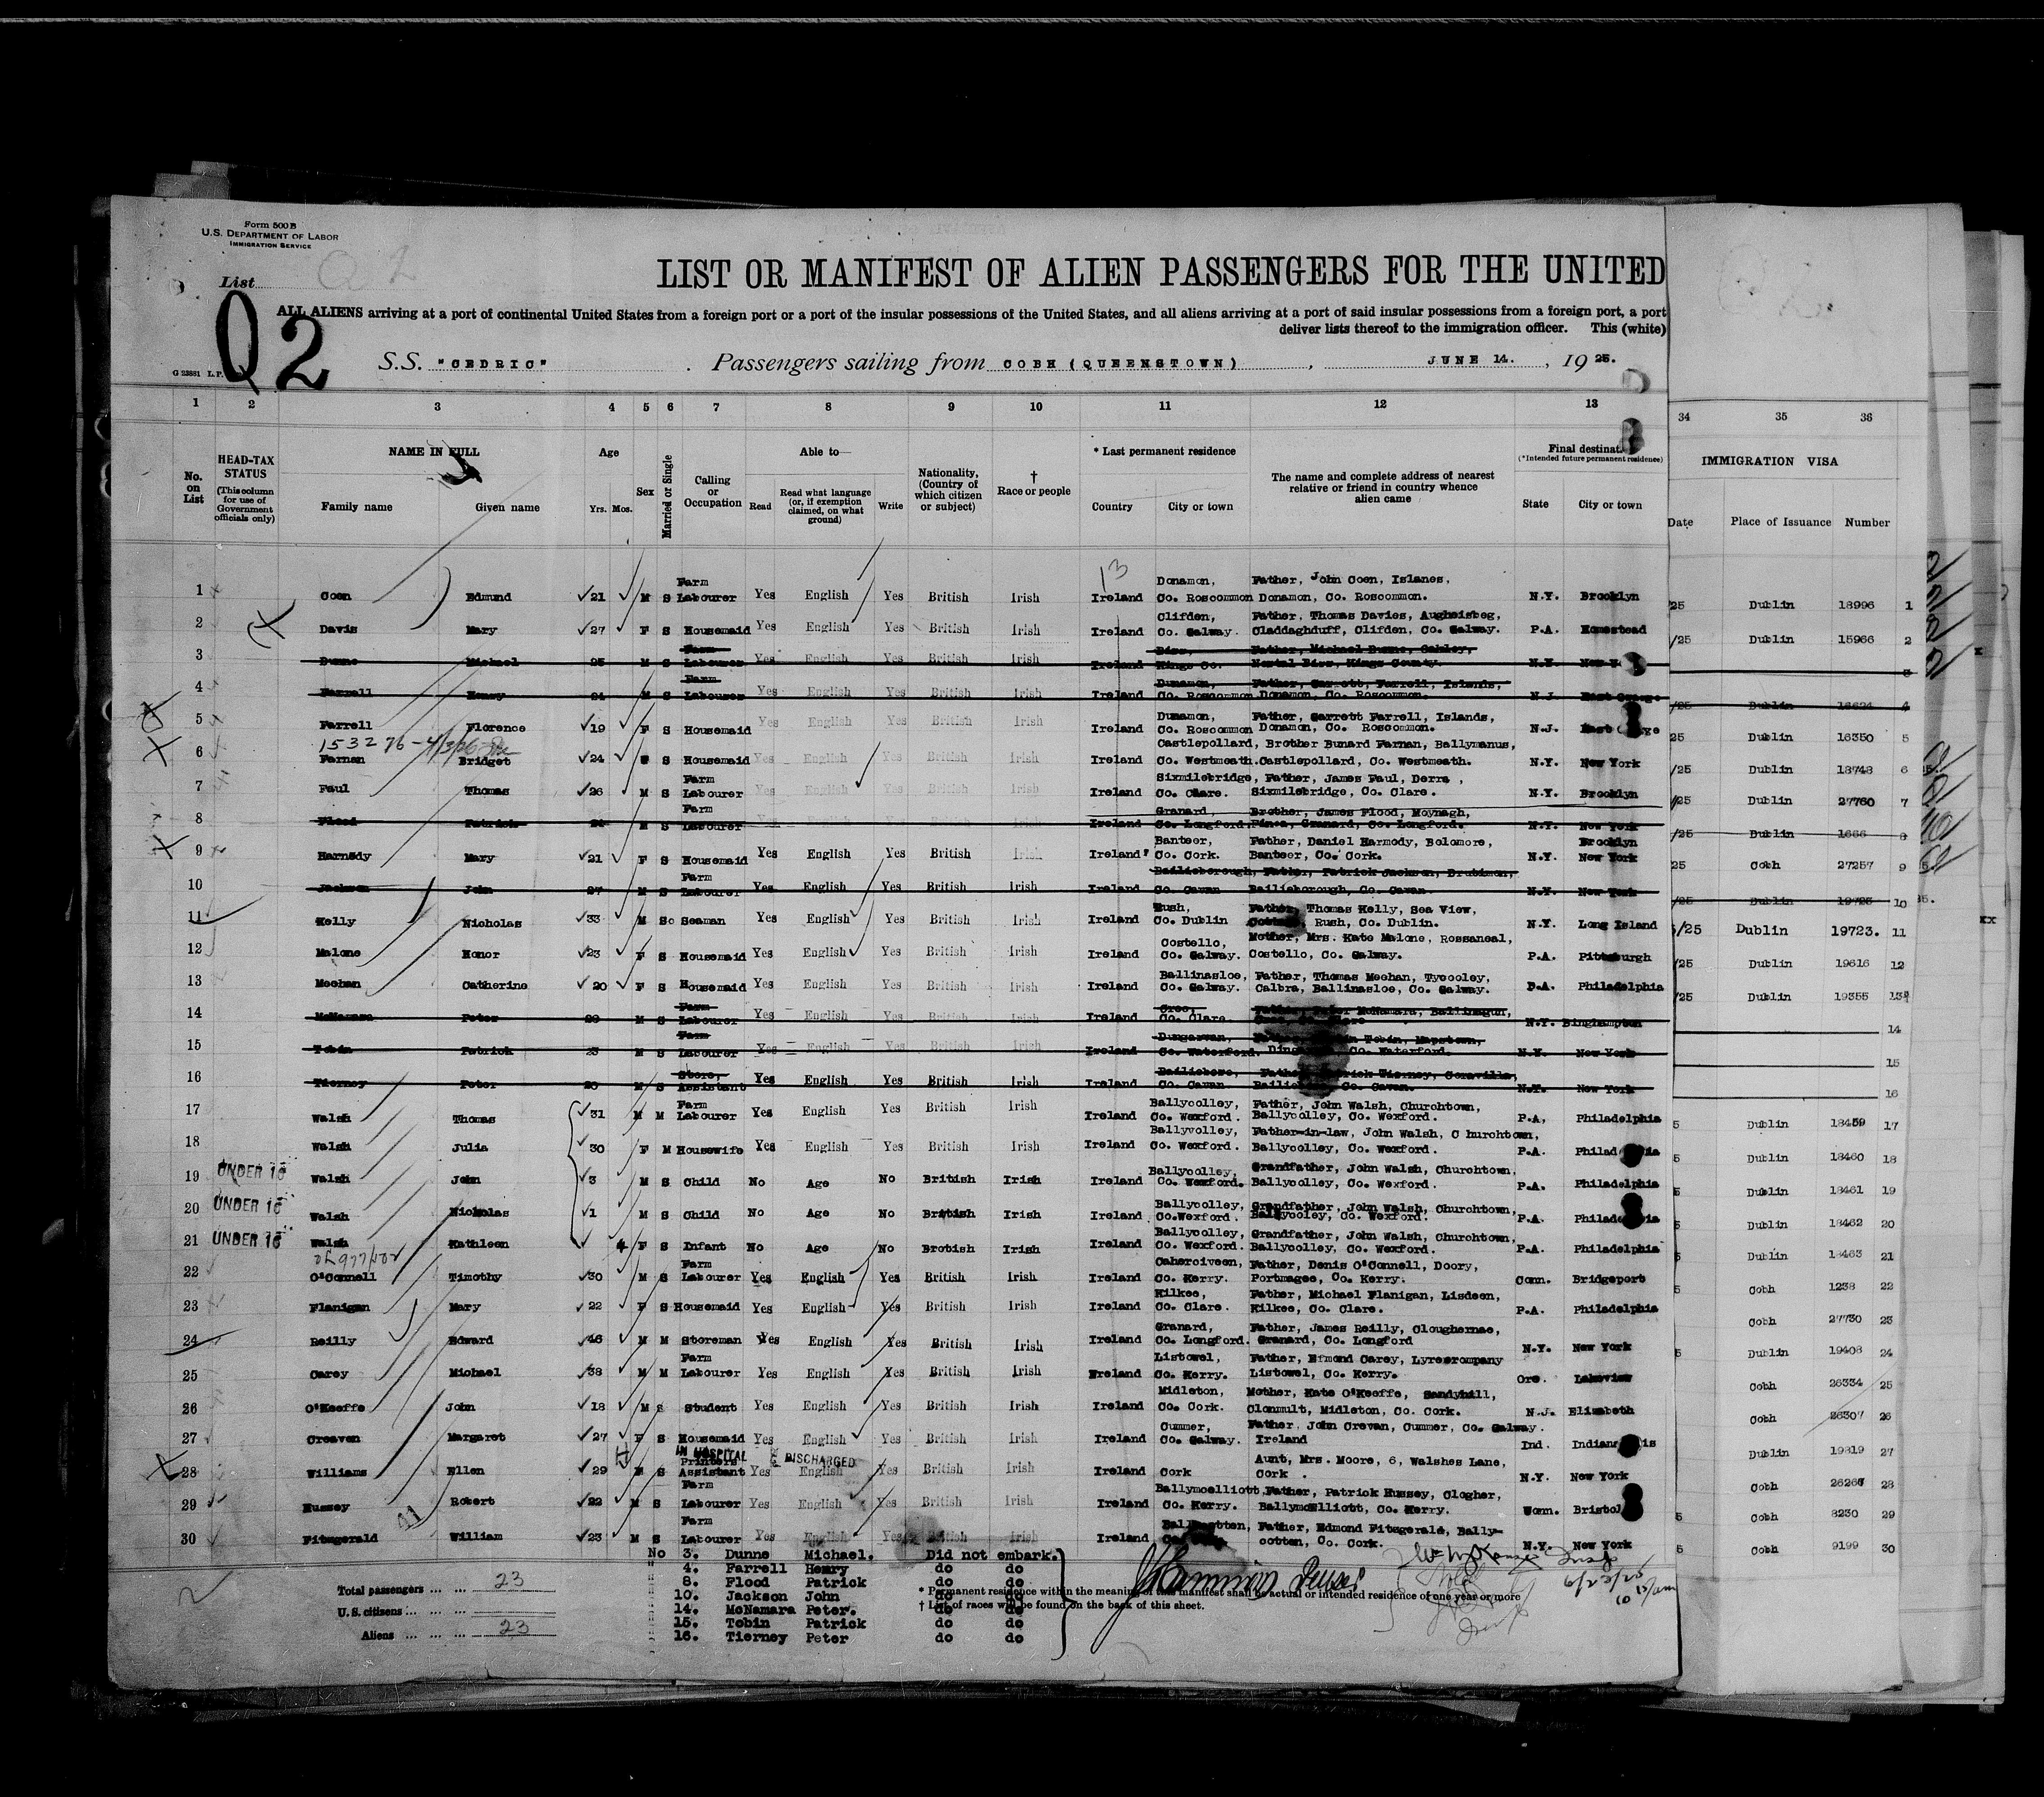 Form 500 B
U.S. DEPARTMENT OF LABOR
IMMIGRATION SERVICE
List
Q2
LIST OR MANIFEST OF ALIEN PASSENGERS FOR THE UNITED
ALL ALIENS arriving at a port of continental United States from a foreign port or a port of the insular possessions of the United States, and all aliens arriving at a port of said insular possessions from a foreign port, a port
deliver lists thereof to the immigration officer. This (white)
S.S. "CEDRIC" . Passengers sailing from COBH (QUEENSTOWN) , JUNE 14. , 19 25.
1 2 3 4 5 6 7 8 9 10 11 12 13 34 35 36
No. on List
HEAD-TAX STATUS (This column for use of Government officials only)
NAME IN FULL Family name Given name
Age Yrs. Mos.
Sex
Married or Single
Calling or Occupation
Able to— Read Read what language (or, if exemption claimed, on what ground) Write
Nationality, (Country of which citizen or subject)
† Race or people
* Last permanent residence Country City or town
The name and complete address of nearest relative or friend in country whence alien came
Final destinat (*Intended future permanent residence) State City or town
IMMIGRATION VISA Date Place of Issuance Number
13
1 Coen Edmund 21 M S Farm Labourer Yes English Yes British Irish Ireland Donamon, Co. Roscommon Father, John Coen, Islanes, Donamon, Co. Roscommon. N.Y. Brooklyn /25 Dublin 18996 1
2 Davis Mary 27 F S Housemaid Yes English Yes British Irish Ireland Clifden, Co. Galway. Father, Thomas Davies, Aughaisbeg, Claddaghduff, Clifden, Co. Galway. P.A. Homestead /25 Dublin 15966 2
3 Dunne Michael 25 M S Farm Labourer Yes English Yes British Irish Ireland Birr, Kings Co. Father, Michael Dunne, Oakley, Birr, Kings County. N.Y. 3
4 Farrell Henry 21 M S Farm Labourer Yes English Yes British Irish Ireland Dunamon, Co. Roscommon Father, Garrett, Farrell, Islands, Donamon, Co. Roscommon. N.J. East Orange /25 Dublin 4
5 Farrell Florence 19 F S Housemaid Yes English Yes British Irish Ireland Dunamon, Co. Roscommon Father, Garrett Farrell, Islands, Donamon, Co. Roscommon. N.J. East 25 Dublin 16350 5
153276 - 4/3/
6 Farnan Bridget 24 S Housemaid Yes English Yes British Irish Ireland Castlepollard, Co. Westmeath. Brother Bunard Farnan, Ballymanus, Castlepollard, Co. Westmeath. N.Y. New York /25 Dublin 18748 6
7 Faul Thomas 26 M S Farm Labourer Yes English Yes British Irish Ireland Sixmilebridge, Co. Clare. Father, James Faul, Derra , Sixmilebridge, Co. Clare. N.Y. Brooklyn /25 Dublin 27760 7
8 Flood Patrick M S Farm Labourer Ireland Granard, Co. Longford. Brother, James Flood, Moynagh, Granard, Co. Longford. N.Y. New York /25 Dublin 1666 8
9 Harmody Mary 21 F S Housemaid Yes English Yes British Irish Ireland Banteer, Co. Cork. Father, Daniel Harmody, Bolomore, Banteer, Co. Cork. N.Y. Brooklyn New York 25 Cobh 27257 9
10 Jackson John 27 M S Farm Labourer Yes English Yes British Irish Ireland Bailieborough, Co. Cavan Father, Patrick Jackson, Drubimon, Bailieborough, Co. Cavan. N.Y. New York /25 Dublin 10
11 Kelly Nicholas 33 M S Seaman Yes English Yes British Irish Ireland Rush, Co. Dublin Father, Thomas Kelly, Sea View, Rush, Co. Dublin. N.Y. Long Island /25 Dublin 19723. 11
12 Malone Honor 23 F S Housemaid Yes English Yes British Irish Ireland Costello, Co. Galway. Mother, Mrs. Kate Malone, Rossaneal, Costello, Co. Galway. P.A. Pittsburgh /25 Dublin 19616 12
13 Meehan Catherine 20 F S Housemaid Yes English Yes British Irish Ireland Ballinasloe, Co. Galway. Father, Thomas Meehan, Tycooley, Calbra, Ballinasloe, Co. Galway. P.A. Philadelphia /25 Dublin 19355 13
14 McNamara Peter 28 M S Farm Labourer Yes English Yes British Irish Ireland Cree, Co. Clare McNamara, Ballinagun, N.Y. Binghampton 14
15 Tobin Patrick 23 M S Farm Labourer Yes English Yes British Irish Ireland Dungarvan, Co. Waterford. Tobin, Mapstown, Co. Waterford. N.Y. New York 15
16 Tierney Peter M S Store, Assistant Yes English Yes British Irish Ireland Bailieboro, Co. Cavan Tierney, Co. Cavan. N.Y. New York 16
17 Walsh Thomas 31 M M Farm Labourer Yes English Yes British Irish Ireland Ballycolley, Co. Wexford. Father, John Walsh, Churchtown, Ballycolley, Co. Wexford. P.A, Philadelphia 5 Dublin 18459 17
18 Walsh Julia 30 F M Housewife Yes English Yes British Irish Ireland Ballyvolley, Co. Wexford. Father-in-law, John Walsh, C hurchtown, Ballycolley, Co. Wexford. P.A. 5 Dublin 18460 18
19 UNDER 16 Walsh John 3 M S Child No Age No British Irish Ireland Ballycolley, Co. Wexford. Grandfather, John Walsh, Churchtown, Ballycolley, Co. Wexford. P.A. Philadelphia 5 Dublin 18461 19
20 UNDER 16 Walsh Nicholas 1 M S Child No Age No British Irish Ireland Ballycolley, Co.Wexford. Grandfather, John Walsh, Churchtown, Ballycooley, Co. Wexford. P.A. 5 Dublin 18462 20
21 UNDER 16 Walsh Kathleen 4 F S Infant No Age No Brotish Irish Ireland Ballycolley, Co. Wexford. Grandfather, John Walsh, Churchtown, Ballycolley, Co. Wexford. P.A. Philadelphia 5 Dublin 18463 21
22 O'Connell Timothy 30 M S Farm Labourer Yes English Yes British Irish Ireland Caherciveen, Co. Kerry. Father, Denis O'Connell, Doory, Portmagee, Co. Kerry. Conn. Bridgeport Cobh 1238 22
23 Flanigan Mary 22 F S Housemaid Yes English Yes British Irish Ireland Kilkee, Co. Clare. Father, Michael Flanigan, Lisdeen, Kilkee, Co. Clare. P.A. Philadelphia Cobh 27730 23
24 Reilly Edward 46 M M Storeman Yes English Yes British Irish Ireland Granard, Co. Longford. Father, James Reilly, Cloughernae, Granard, Co. Longford N.Y. New York 5 Dublin 19408 24
25 Carey Michael 38 M M Farm Labourer Yes English Yes British Irish Ireland Listowel, Co. Kerry. Father, Efmond Carey, Lyrecrompany Listowel, Co. Kerry. Ore. Lakeview Cobh 26334 25
26 O'Keeffe John 18 M S Student Yes English Yes British Irish Ireland Midleton, Co. Cork. Mother, Kate O'Keeffe, Sandyhill, Clonmult, Midleton, Co. Cork. N.J. Elizabeth Cobh 26307 26
27 Creaven Margaret 27 F S Housemaid Yes English Yes British Irish Ireland Cummer, Co. Galway. Father, John Crevan, Cummer, Co. Galway. Ireland Ind. Dublin 19819 27
IN HOSPITAL DISCHARGED
28 Williams Ellen 29 S Printers Assistant Yes English Yes British Irish Ireland Cork Aunt, Mrs. Moore, 6, Walshes Lane, Cork . N.Y. New York Cobh 28
29 Hussey Robert 22 M S Farm Labourer Yes English Yes British Irish Ireland Ballymcelliott, Co. Kerry. Father, Patrick Hussey, Clogher, Ballymcelliott, Co. Kerry. Conn. Bristol 5 Cobh 8230 29
30 Fitzgerald William 23 M S Farm Labourer Yes English Yes British Irish Ireland Father, Edmond Fitzgerald, Bally-cotton, Co. Cork. N.Y. New York 5 Cobh 9199 30
No 3. Dunne Michael. Did not embark.
" 4. Farrell Henry do do
" 8. Flood Patrick do do
" 10. Jackson John do do
" 14. McNamara Peter. do do
" 15. Tobin Patrick do do
" 16. Tierney Peter do do
Total passengers ... ... 23
U.S. citizens ... ... ...
Aliens ... ... ... 23
* Permanent residence within the meaning of this manifest shall be actual or intended residence of one year or more
† List of races will be found on the back of this sheet.